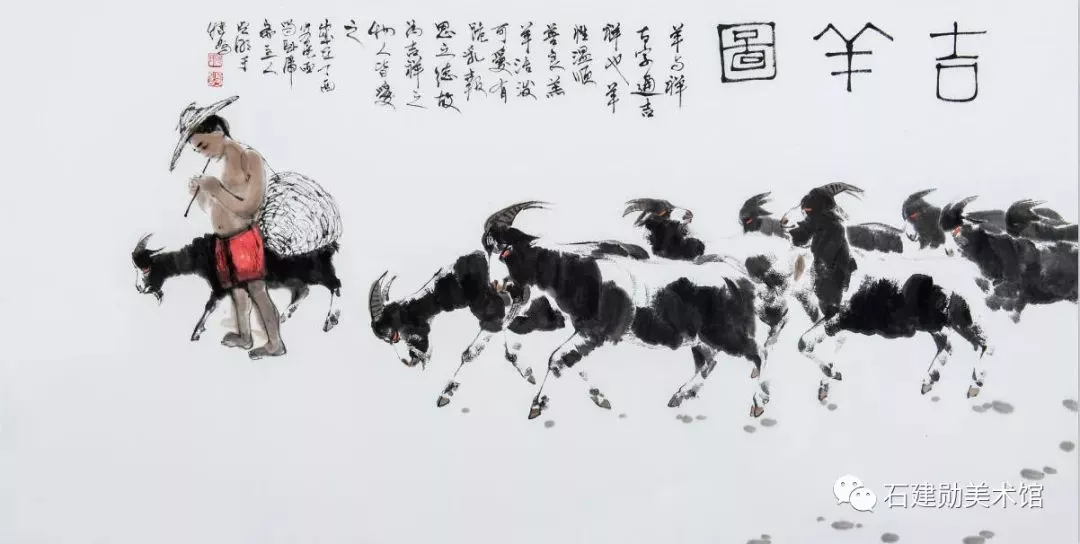 吉羊圖
羊与祥
古字通吉
祥也羊
性温順
善良羔
羊活泼
可爱有
跪乳報
恩之德故
為吉祥之
物人皆愛
之
歲在丁酉
石建勋美术馆